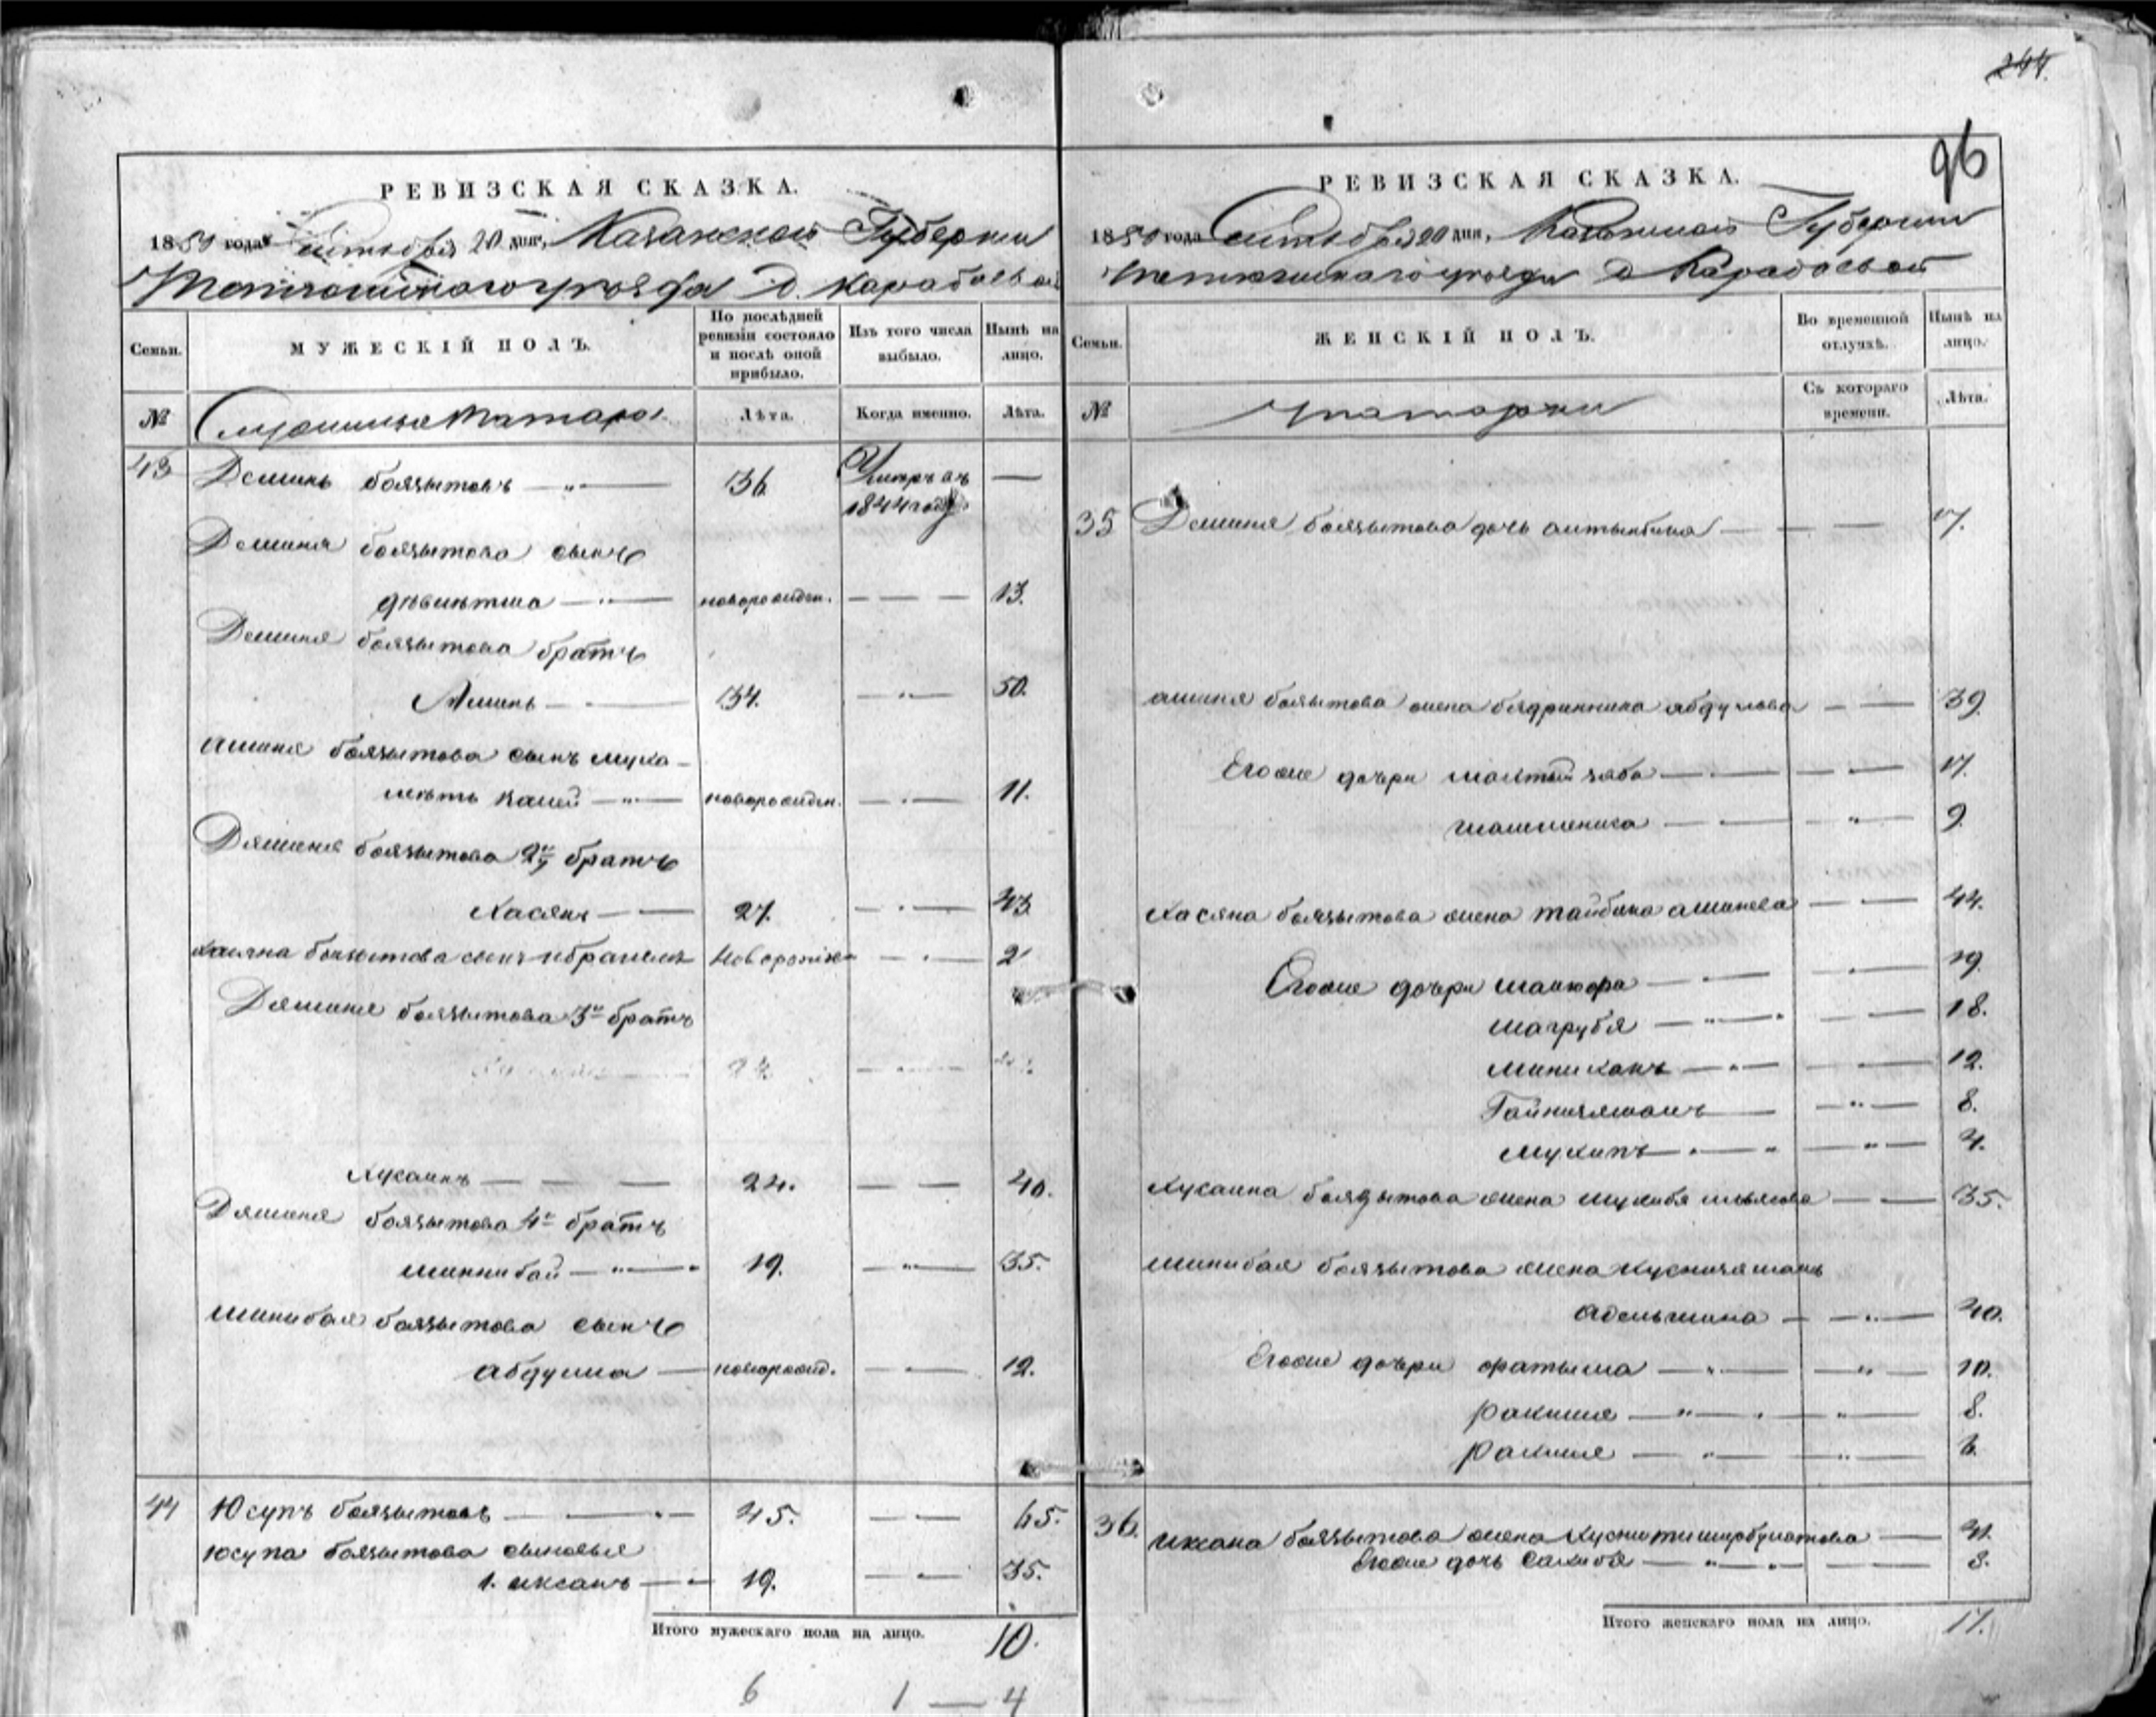 244.
96
РЕВИЗСКАЯ СКАЗКА.
1850 года Октября 20 дня, Казанской Губернии
Тетюшинского уѣзда д. Карабаевой
Семьи.
МУЖЕСКІЙ ПОЛЪ.
По послѣдней ревизіи состояло и послѣ оной прибыло.
Изъ того числа выбыло.
Нынѣ на лицо.
№
татары
Лѣта.
Когда именно.
Лѣта.
43 Деминь боязытовъ — 36 Умеръ въ 1844 году —
Деминя боязытова сынъ
новорожден. — 13.
Деминя боязытова братъ
Аминь — 34. — 50.
аминя боязытова сынъ муха-
метъ Калей — новорожден. — 11.
Дяминя боязытова 2й братъ
Хасянъ — 27. — 43.
Хасяна боязытова сынъ ибрагимъ — 2
Дяминя боязытова 3й братъ
Хусаинъ — 24. — 40.
Дяминя боязытова 4й братъ
миннибай — 19. — 35.
минибая боязытова сынъ
абдулла — новорожд. — 12.
44 Юсупъ боязытовъ — 45. — 65.
юсупа боязытова сыновья
1. иксанъ — 19. — 35.
Итого мужескаго пола на лицо. 10.
6 1 — 4
РЕВИЗСКАЯ СКАЗКА.
1850 года Октября 20 дня, Казанской Губернии
Тетюшинского уѣзда д Карабаевой
Семьи.
ЖЕНСКІЙ ПОЛЪ.
Во временной отлучкѣ.
Нынѣ на лицо.
№
татарки
Съ котораго времени.
Лѣта.
35 Деминя боязытова дочь алтынбика — 17.
аминя боязытова жена бядринниса абдулова — 39.
Егоже дочери — 17.
— 9.
Хасяна боязытова жена тайбика аминева — 44.
Егоже дочери — 19.
магрубя — 18.
миниханъ — 12.
Гайнизямалъ — 8.
мухипъ — 4.
Хусаина боязытова жена мухибя ильясова — 35.
минибая боязытова жена хуснизямалъ
адельшина — 40.
Егоже дочери фатыма — 10.
— 8.
— 6.
36. иксана боязытова жена — 41.
Егоже дочь сахибя — 8.
Итого женскаго пола на лицо. 17.